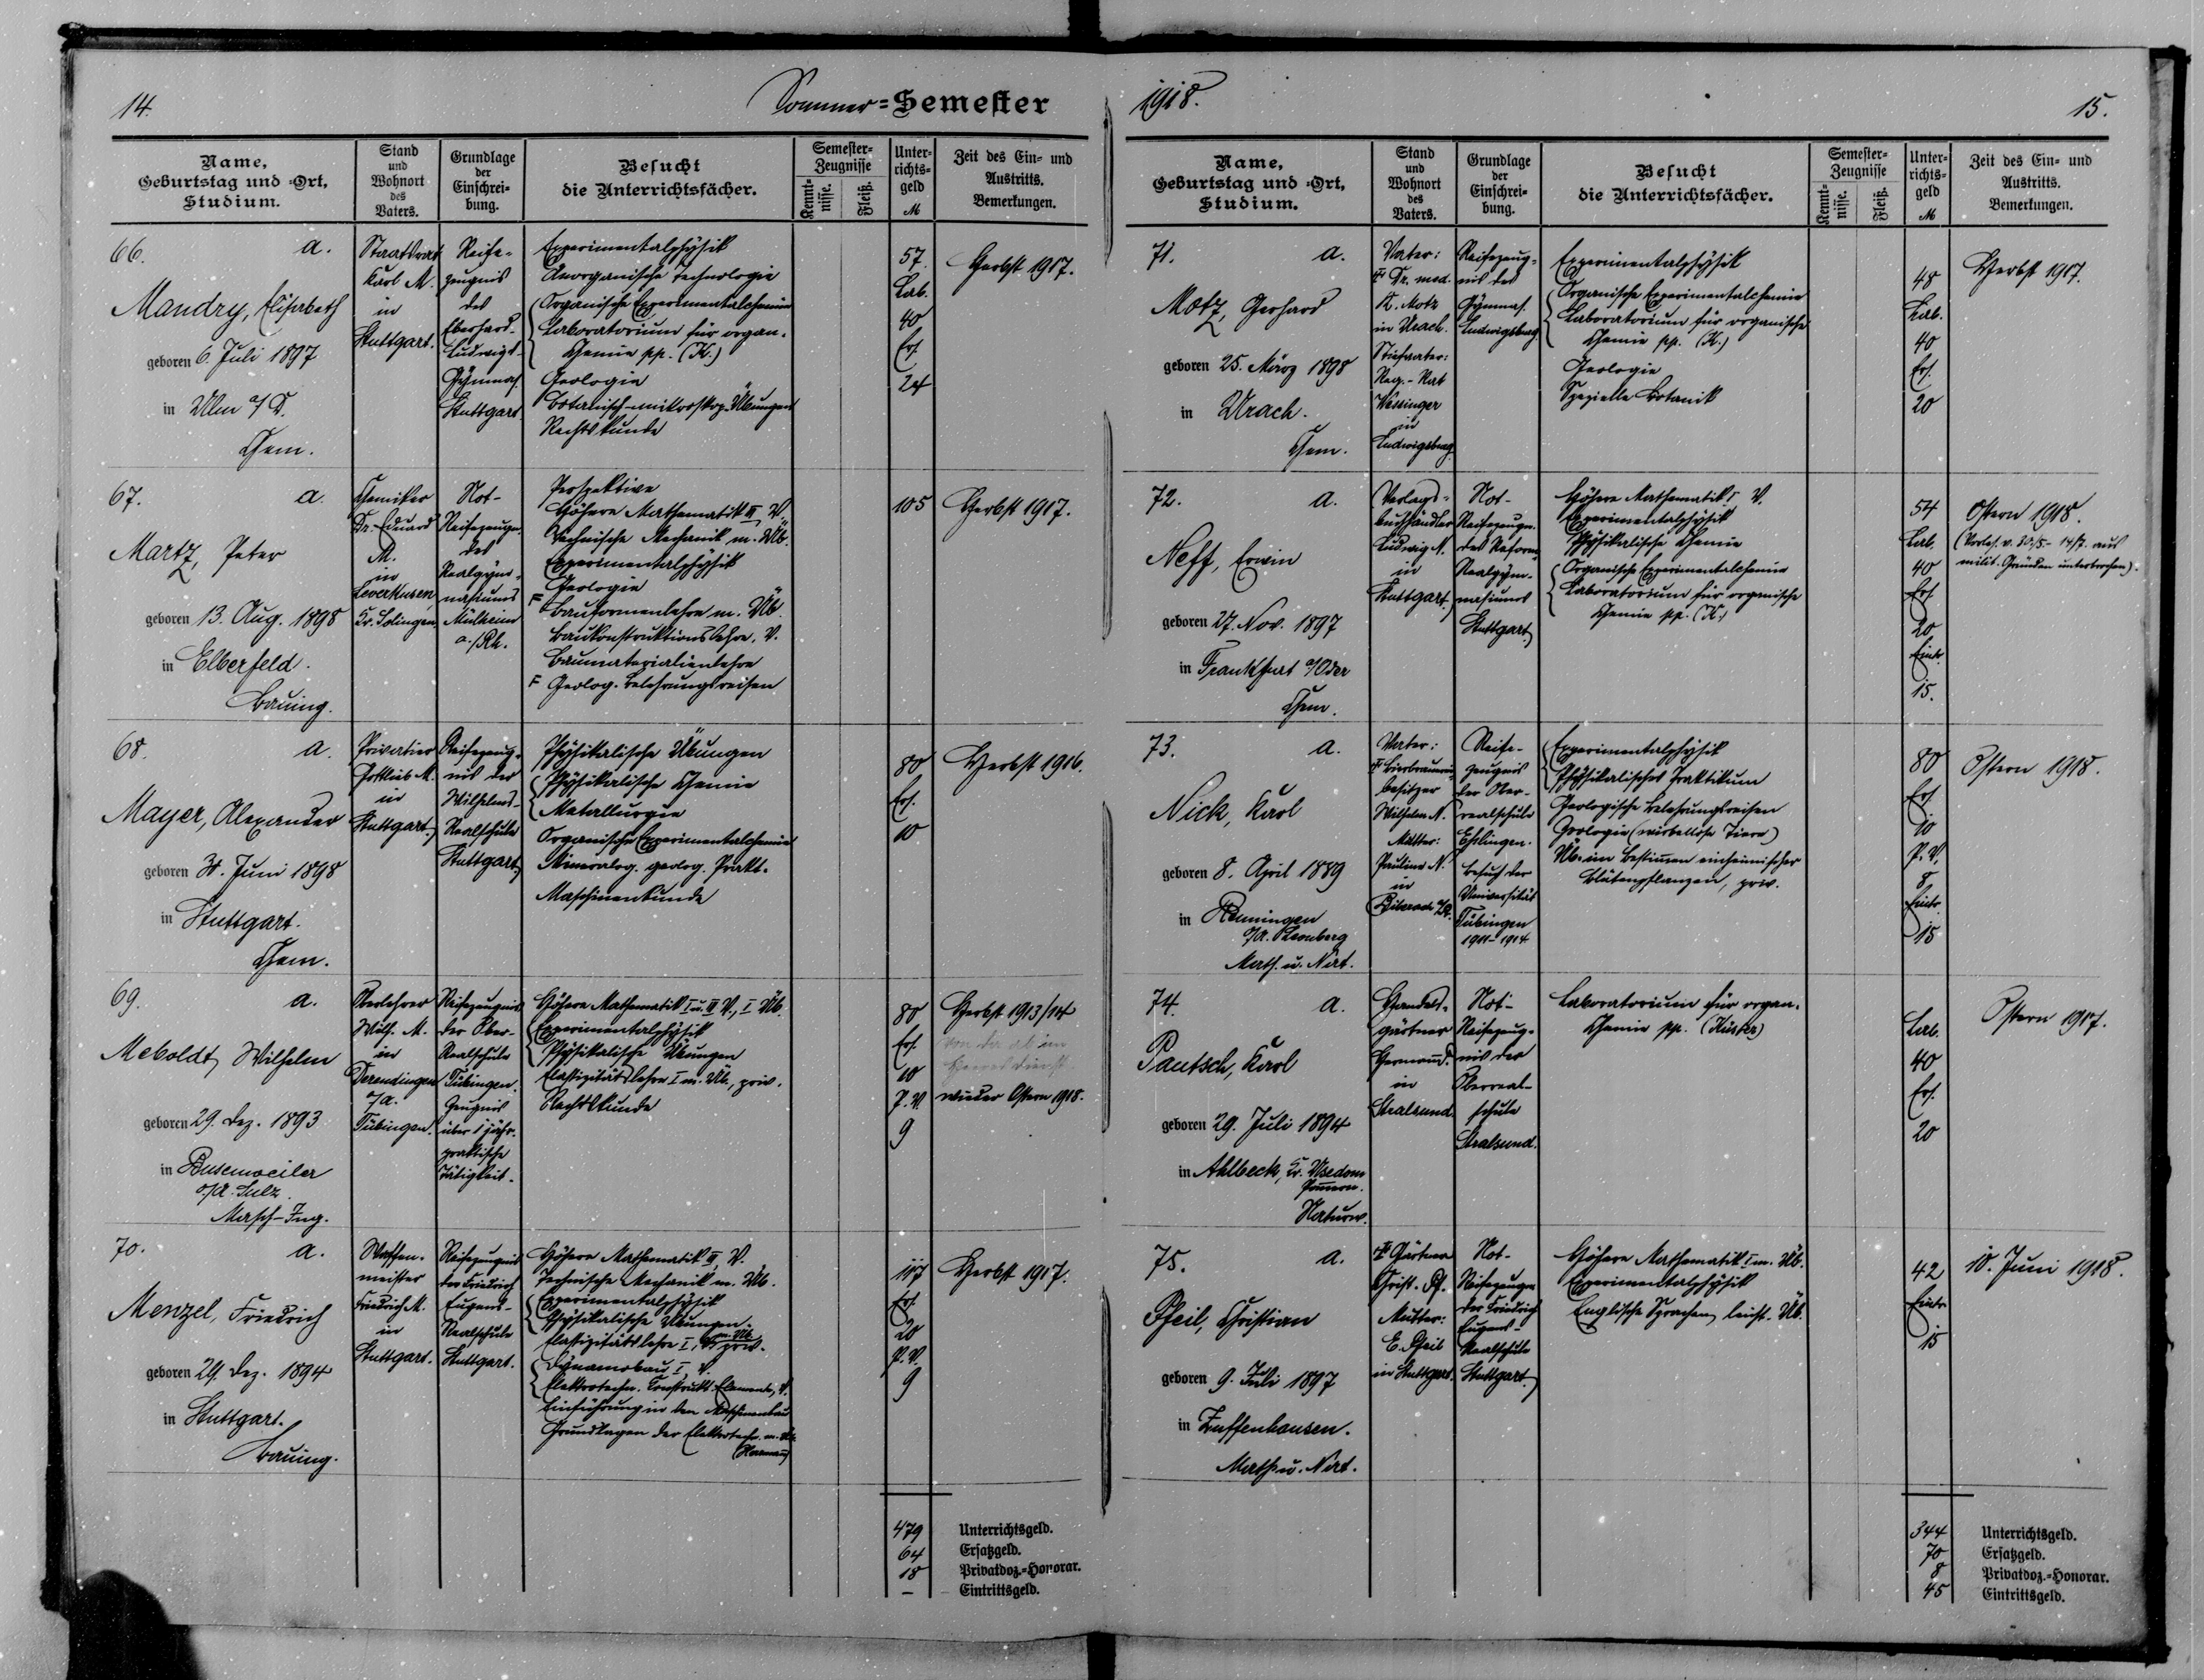 14.
Sommer=Semester
Name,
Geburtstag und =Ort,
Studium.
Stand
und
Wohnort
des
Vaters.
Grundlage
der
Einschrei-
bung.
Besucht
die Unterrichtsfächer.
Semester-
Zeugnisse
Kennt-
nisse.
Fleiß.
Unter-
richts-
geld
M
Zeit des Ein- und
Austritts.
Bemerkungen.
66.
a.
Mandry, Elisabeth
geboren 6. Juli 1897
in Ulm a/D.
Chem.
Staatsrat
Karl M.
in
Stuttgart.
Reife-
zeugnis
des
Eberhard-
Ludwigs-
Gymnas.
Stuttgart.
Experimentalphysik
Anorganische Technologie
Organische Experimentalchemie
Laboratorium für organ.
Chemie pp. (K.)
Geologie
Botanisch-mikroskop. Übungen
Rechtskunde
57.
Lab.
40
Ers.
24
Herbst 1917.
67.
a.
Martz, Peter
geboren 13. Aug. 1898
in Elberfeld.
Bauing.
Chemiker
Dr. Eduard
M.
in
Leverkusen,
Kr. Solingen.
Not-
Reifezeugn.
des
Realgym-
nasiums
Mülheim
a./Rh.
Perspektive
Höhere Mathematik III, V.
Technische Mechanik m. Üb.
Experimentalphysik
Geologie
Bauformenlehre m. Üb.
Baukonstruktionslehre, V.
Baumaterialienlehre
Geolog. Belehrungsreisen
105
Herbst 1917.
68.
a.
Mayer, Alexander
geboren 4. Juni 1898
in Stuttgart.
Chem.
Privatier
Gottlieb M.
in
Stuttgart.
Reifezeug-
nis der
Wilhelms-
Realschule
Stuttgart.
Physikalische Übungen
Physikalische Chemie
Metallurgie
Organische Experimentalchemie
Mineralog. geolog. Prakt.
Maschinenkunde
80
Ers.
10
Herbst 1916.
69.
a.
Meboldt, Wilhelm
geboren 29. Dez. 1893
in Busenweiler
O/A. Sulz
Masch-Ing.
Oberlehrer
Wilh. M.
in
Derendingen
O/A.
Tübingen.
Reifezeugnis
der Ober-
Realschule
Tübingen.
Zeugnis
über 1 jähr.
praktische
Tätigkeit.
Höhere Mathematik I u. III V., I Üb.
Experimentalphysik
Physikalische Übungen
Elastizitätslehre I m. Üb., priv.
Rechtskunde
80
Ers.
10
P. V.
9
Herbst 1913/14
von da ab im
Heeresdienst
wieder Ostern 1918.
70.
a.
Menzel, Friedrich
geboren 29. Dez. 1894
in Stuttgart.
Bauing.
Waffen-
meister
Friedrich M.
in
Stuttgart.
Reifezeugnis
der Friedrich
Eugens-
Realschule
Stuttgart.
Höhere Mathematik III, V.
Technische Mechanik m. Üb.
Experimentalphysik
Physikalische Übungen
Elastizitätslehre I, m. Üb. priv.
Dynamobau I, V.
Elektrotechn. Konstrukt. Elemente, V.
Einführung in den Maschinenbau
Grundlagen der Elektrotechn. m. Üb.
(Herrmann)
117
Ers.
20
P. V.
9
Herbst 1917.
479 Unterrichtsgeld.
64 Ersatzgeld.
18 Privatdoz.=Honorar.
– Eintrittsgeld.
1918.
15.
Name,
Geburtstag und =Ort,
Studium.
Stand
und
Wohnort
des
Vaters.
Grundlage
der
Einschrei-
bung.
Besucht
die Unterrichtsfächer.
Semester-
Zeugnisse
Kennt-
nisse.
Fleiß.
Unter-
richts-
geld
M
Zeit des Ein- und
Austritts.
Bemerkungen.
71.
a.
Motz, Gerhard
geboren 25. März 1898
in Urach.
Chem.
Vater:
Dr. med.
K. Motz
in Urach.
Stiefvater:
Reg.-Rat
Wessinger
in
Ludwigsburg.
Reifezeug-
nis des
Gymnas.
Ludwigsburg.
Experimentalphysik
Organische Experimentalchemie
Laboratorium für organische
Chemie pp. (K.)
Geologie
Spezielle Botanik
48
Lab.
40
Ers.
20
Herbst 1917.
72.
a.
Neff, Erwin
geboren 27. Nov. 1897
in Frankfurt a/Oder
Chem.
Verlags-
buchhändler
Ludwig N.
in
Stuttgart.
Not-
Reifezeugn.
des Reform-
Realgym-
nasiums
Stuttgart.
Höhere Mathematik I V.
Experimentalphysik
Physikalische Chemie
Organische Experimentalchemie
Laboratorium für organische
Chemie pp. (K.)
54
Lab.
40
Ers.
20
Eintr.
15.
Ostern 1918.
(Vorles. v. 30/5 - 14/7. aus
milit. Gründen unterbrochen).
73.
a.
Nick, Karl
geboren 8. April 1889
in Renningen
O/A. Leonberg
Math. u. Nat.
Vater:
Bierbrauerei-
besitzer
Wilhelm N.
Mutter:
Pauline N.
in
Biberach a/R.
Reife-
zeugnis
der Ober-
realschule
Eßlingen.
Besuch der
Universität
Tübingen
1911-1914
Experimentalphysik
Physikalisches Praktikum
Geologische Belehrungsreisen
Zoologie (wirbellose Tiere)
Üb. im Bestimmen einheimischer
Blütenpflanzen, priv.
80
Ers.
10
P. V.
8
Eintr.
15
Ostern 1918.
74.
a.
Pautsch, Karl
geboren 29. Juli 1894
in Ahlbeck, Kr. Usedom
Pommern.
Naturw.
Handels-
gärtner
Hermann P.
in
Stralsund.
Not-
Reifezeug-
nis der
Oberreal-
schule
Stralsund.
Laboratorium für organ.
Chemie pp. (Küster)
Lab.
40
Ers.
20
Ostern 1917.
75.
a.
Pfeil, Christian
geboren 9. Juli 1897
in Zuffenhausen.
Math. u. Nat.
Gärtner
Christ. Pf.
Mutter:
E. Pfeil
in Stuttgart.
Not-
Reifezeugn.
der Friedrich
Eugens-
Realschule
Stuttgart.
Höhere Mathematik I m. Üb.
Experimentalphysik
Englische Sprache, leicht. Üb.
42
Eintr.
15
10. Juni 1918.
344 Unterrichtsgeld.
70 Ersatzgeld.
8 Privatdoz.=Honorar.
45 Eintrittsgeld.